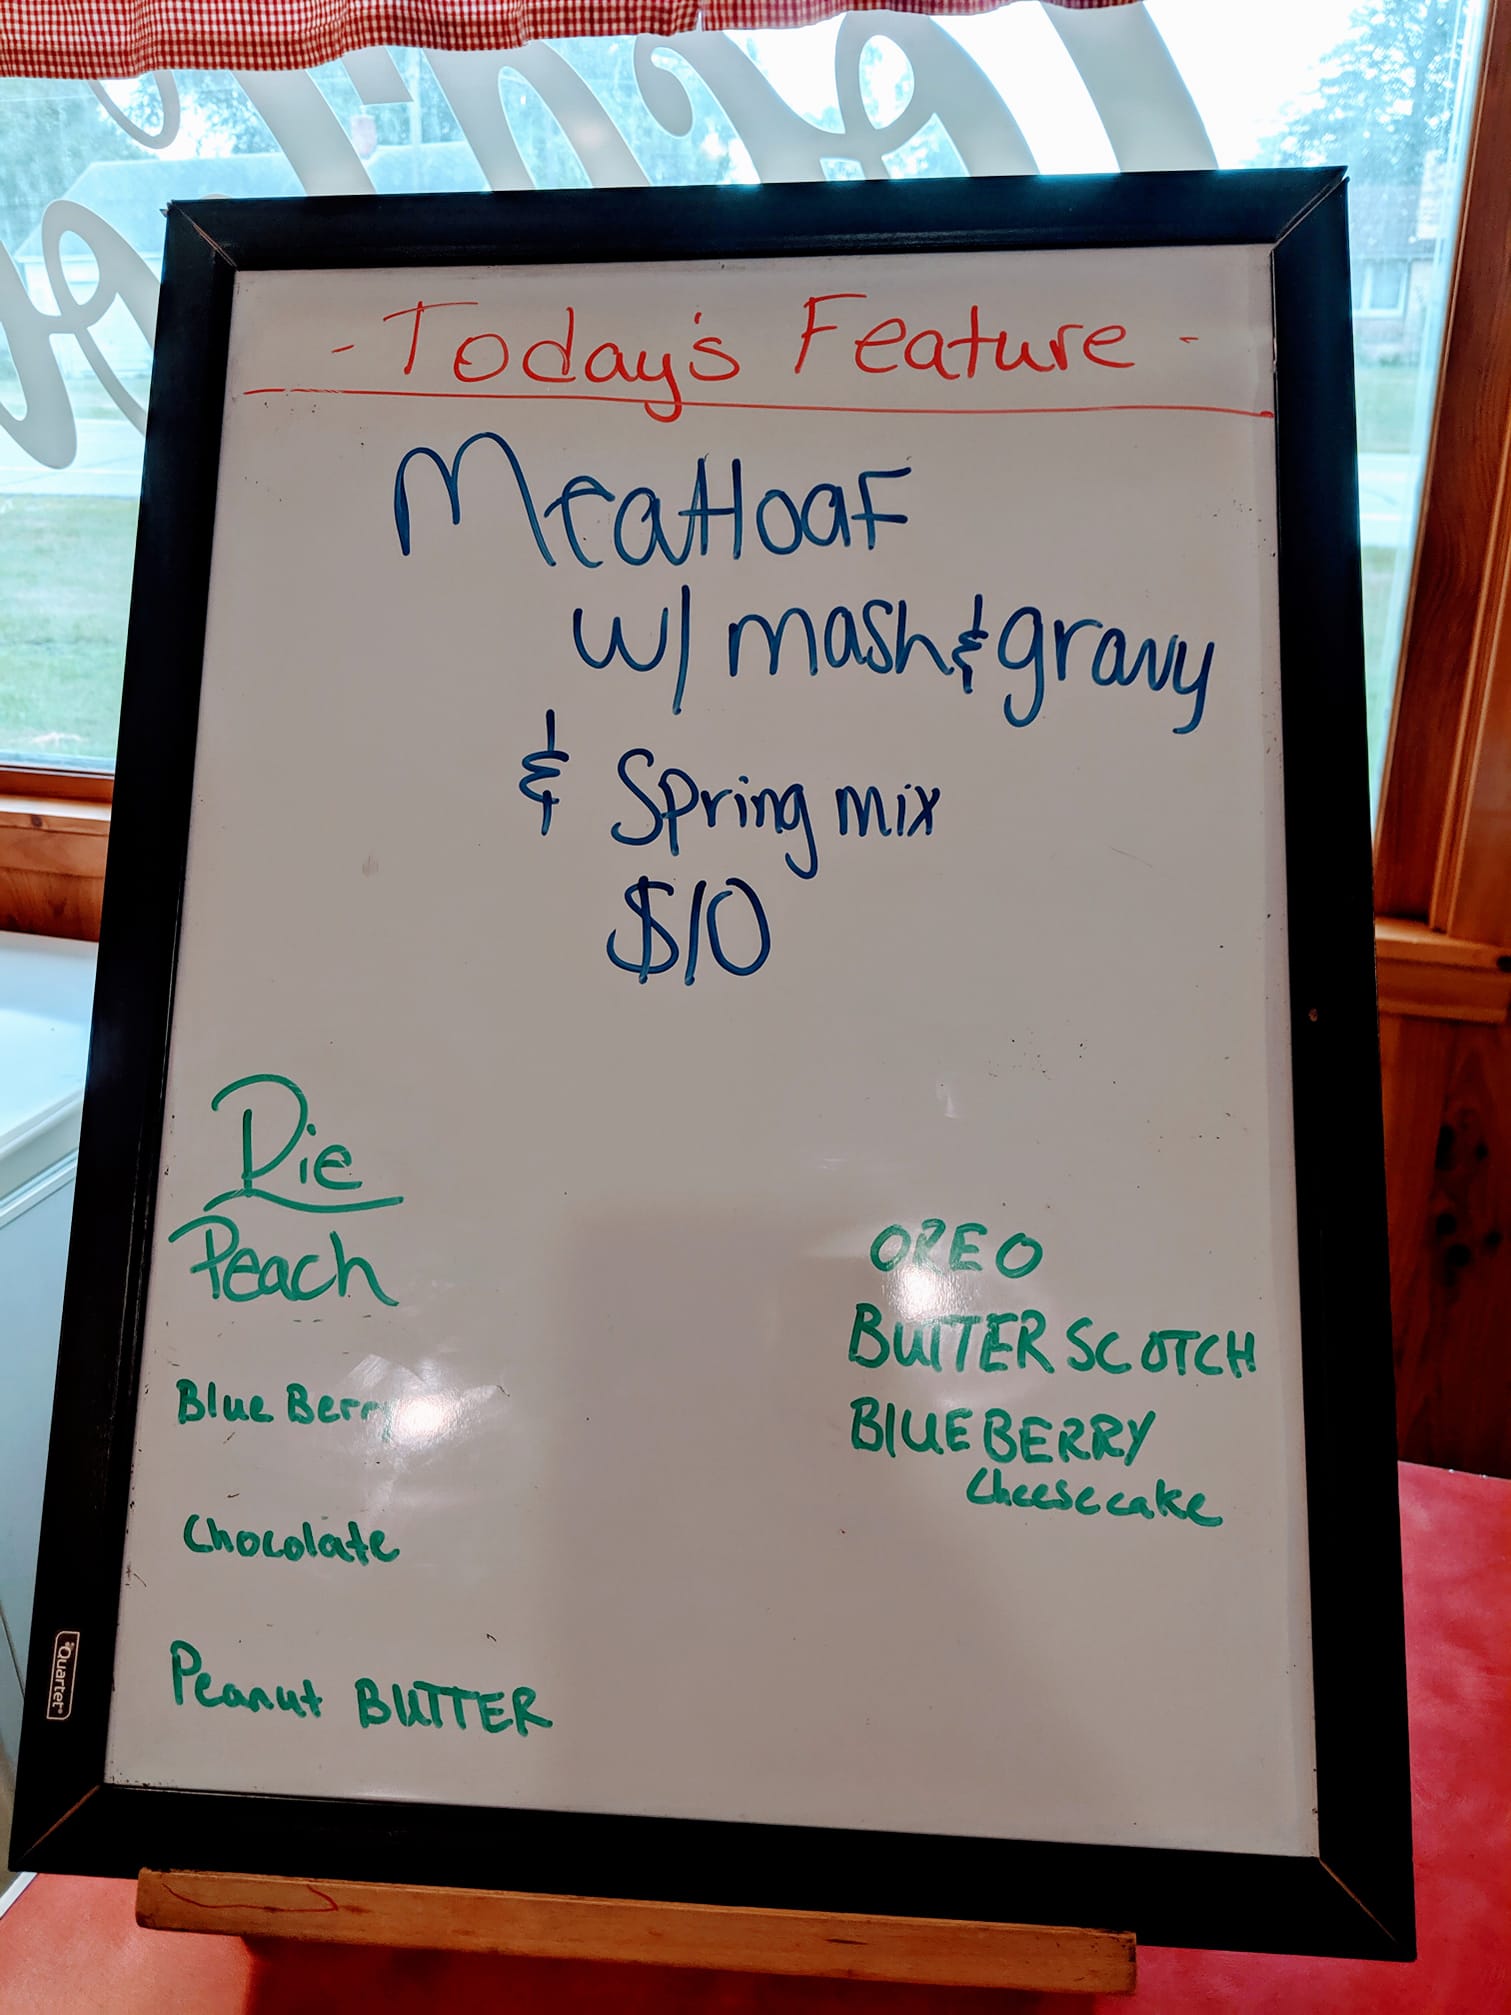 - Today's Feature -
Meatloaf
w/ mash & gravy
& Spring mix
$10
Pie
Peach
Blue Berry
Chocolate
Peanut BUTTER
OREO
BUTTERSCOTCH
BlUEBERRY
Cheesecake
Quartet